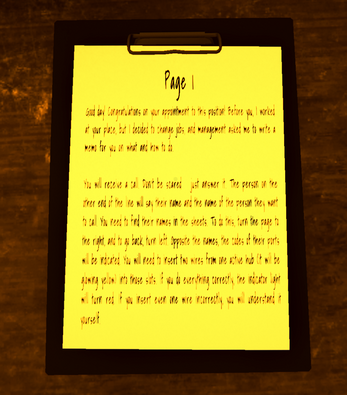 Page 1
Good day! Congratulations on your appointment to this position! Before you, I worked
at your place, but I decided to change jobs and management asked me to write a
memo for you on what and how to do.
You will receive a call. Don't be scared just answer it. The person on the
other end of the line will say their name and the name of the person they want
to call. You need to find their names in the sheets. To do this, turn the page to
the right, and to go back, turn left. Opposite the names, the codes of their ports
will be indicated. You will need to insert two wires from one active hub (it will be
glowing yellow) into those slots. If you do everything correctly, the indicator light
will turn red. If you insert even one wire incorrectly, you will understand it
yourself.